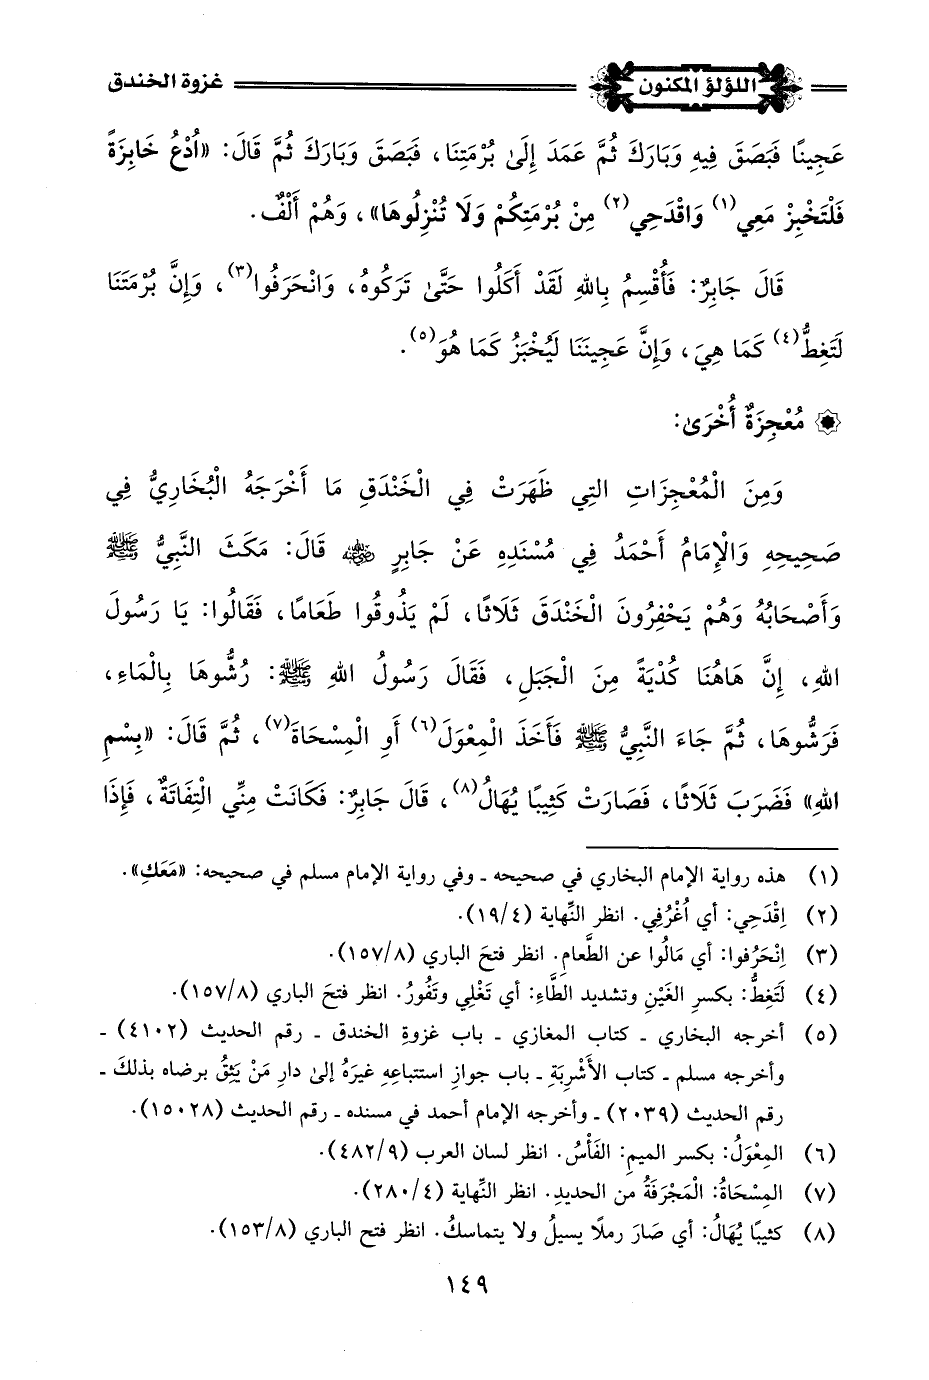 اللؤلؤ المكنون
غزوة الخندق
عَجِينًا فَبَصَقَ فِيهِ وَبَارَكَ ثُمَّ عَمَدَ إِلَىٰ بُرْمَتِنَا، فَبَصَقَ وَبَارَكَ ثُمَّ قَالَ: «اُدْعُ خَابِزَةً
فَلْتَخْبِزْ مَعِي(١) وَاقْدَحِي(٢) مِنْ بُرْمَتِكُمْ وَلَا تُنْزِلُوهَا»، وَهُمْ أَلْفٌ.
قَالَ جَابِرٌ: فَأُقْسِمُ بِاللهِ لَقَدْ أَكَلُوا حَتَّىٰ تَرَكُوهُ، وَانْحَرَفُوا(٣)، وَإِنَّ بُرْمَتَنَا
لَتَغِطُّ(٤) كَمَا هِيَ، وَإِنَّ عَجِينَنَا لَيُخْبَزُ كَمَا هُوَ(٥).
مُعْجِزَةٌ أُخْرَىٰ:
وَمِنَ الْمُعْجِزَاتِ التِي ظَهَرَتْ فِي الْخَنْدَقِ مَا أَخْرَجَهُ الْبُخَارِيُّ فِي
صَحِيحِهِ وَالْإِمَامُ أَحْمَدُ فِي مُسْنَدِهِ عَنْ جَابِرٍ رضي الله عنه قَالَ: مَكَثَ النَّبِيُّ ﷺ
وَأَصْحَابُهُ وَهُمْ يَحْفِرُونَ الْخَنْدَقَ ثَلَاثًا، لَمْ يَذُوقُوا طَعَامًا، فَقَالُوا: يَا رَسُولَ
اللهِ، إِنَّ هَاهُنَا كُدْيَةً مِنَ الْجَبَلِ، فَقَالَ رَسُولُ اللهِ ﷺ: رُشُّوهَا بِالْمَاءِ،
فَرَشُّوهَا، ثُمَّ جَاءَ النَّبِيُّ ﷺ فَأَخَذَ الْمِعْوَلَ(٦) أَوِ الْمِسْحَاةَ(٧)، ثُمَّ قَالَ: «بِسْمِ
اللهِ» فَضَرَبَ ثَلَاثًا، فَصَارَتْ كَثِيبًا يُهَالُ(٨)، قَالَ جَابِرٌ: فَكَانَتْ مِنِّي الْتِفَاتَةٌ، فَإِذَا
(١) هذه رواية الإمام البخاري في صحيحه ـ وفي رواية الإمام مسلم في صحيحه: «مَعَكِ».
(٢) اِقْدَحِي: أي اُغْرُفِي. انظر النِّهاية (١٩/٤).
(٣) اِنْحَرَفُوا: أي مَالُوا عن الطَّعامِ. انظر فتحَ الباري (١٥٧/٨).
(٤) لَتَغِطُّ: بكسرِ الغَيْنِ وتشديد الطَّاءِ: أي تَغْلِي وتَفُورُ. انظر فتحَ الباري (١٥٧/٨).
(٥) أخرجه البخاري ـ كتاب المغازي ـ باب غزوةِ الخندق ـ رقم الحديث (٤١٠٢) ـ
وأخرجه مسلم ـ كتاب الأَشْرِبَةِ ـ باب جوازِ استتباعِهِ غيرَهُ إلىٰ دارِ مَنْ يَثِقُ برضاه بذلكَ ـ
رقم الحديث (٢٠٣٩) ـ وأخرجه الإمام أحمد في مسنده ـ رقم الحديث (١٥٠٢٨).
(٦) المِعْوَلُ: بكسر الميمِ: الفَأْسُ. انظر لسان العرب (٤٨٢/٩).
(٧) المِسْحَاةُ: الْمَجْرَفَةُ من الحديدِ. انظر النِّهاية (٢٨٠/٤).
(٨) كثيبًا يُهَالُ: أي صَارَ رملًا يسيلُ ولا يتماسكُ. انظر فتح الباري (١٥٣/٨).
١٤٩